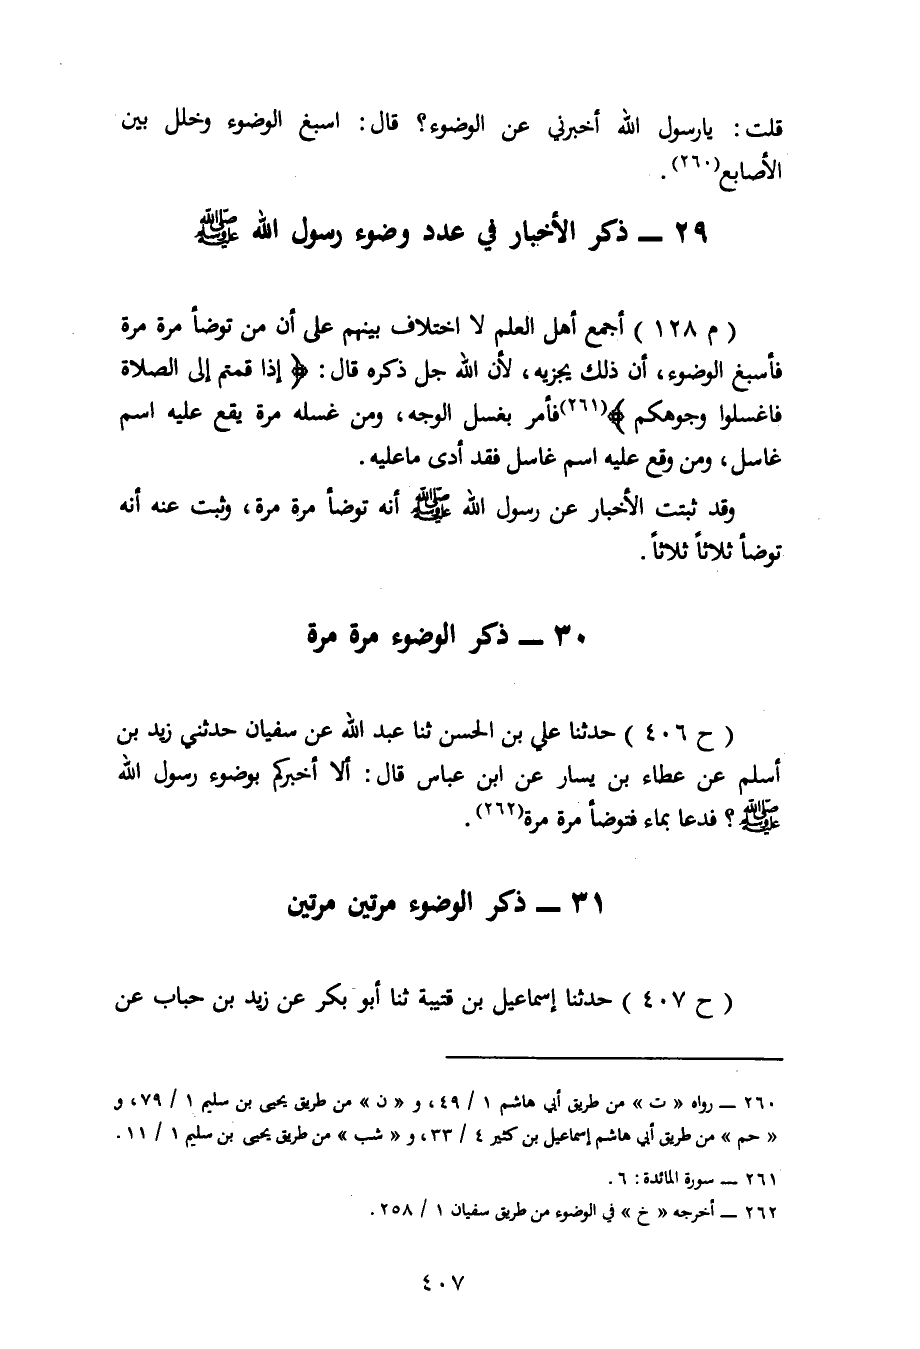 قلت : يارسول الله أخبرني عن الوضوء؟ قال : اسبغ الوضوء وخلل بين
الأصابع(٢٦٠) .
٢٩ ــ ذكر الأخبار في عدد وضوء رسول الله ﷺ
( م ١٢٨ ) أجمع أهل العلم لا اختلاف بينهم على أن من توضأ مرة مرة
فأسبغ الوضوء، أن ذلك يجزيه، لأن الله جل ذكره قال : ﴿ إذا قمتم إلى الصلاة
فاغسلوا وجوهكم ﴾(٢٦١)فأمر بغسل الوجه، ومن غسله مرة يقع عليه اسم
غاسل، ومن وقع عليه اسم غاسل فقد أدى ماعليه .
وقد ثبتت الأخبار عن رسول الله ﷺ أنه توضأ مرة مرة، وثبت عنه أنه
توضأ ثلاثاً ثلاثاً .
٣٠ ــ ذكر الوضوء مرة مرة
( ح ٤٠٦ ) حدثنا علي بن الحسن ثنا عبد الله عن سفيان حدثني زيد بن
أسلم عن عطاء بن يسار عن ابن عباس قال : ألا أخبركم بوضوء رسول الله
ﷺ ؟ فدعا بماء فتوضأ مرة مرة(٢٦٢) .
٣١ ــ ذكر الوضوء مرتين مرتين
( ح ٤٠٧ ) حدثنا إسماعيل بن قتيبة ثنا أبو بكر عن زيد بن حباب عن
٢٦٠ ــ رواه « ت » من طريق أبي هاشم ١ / ٤٩، و « ن » من طريق يحيى بن سليم ١ / ٧٩، و
« حم » من طريق أبي هاشم إسماعيل بن كثير ٤ / ٣٣، و « شب » من طريق يحيى بن سليم ١ / ١١ .
٢٦١ ــ سورة المائدة : ٦ .
٢٦٢ ــ أخرجه « خ » في الوضوء من طريق سفيان ١ / ٢٥٨ .
٤٠٧